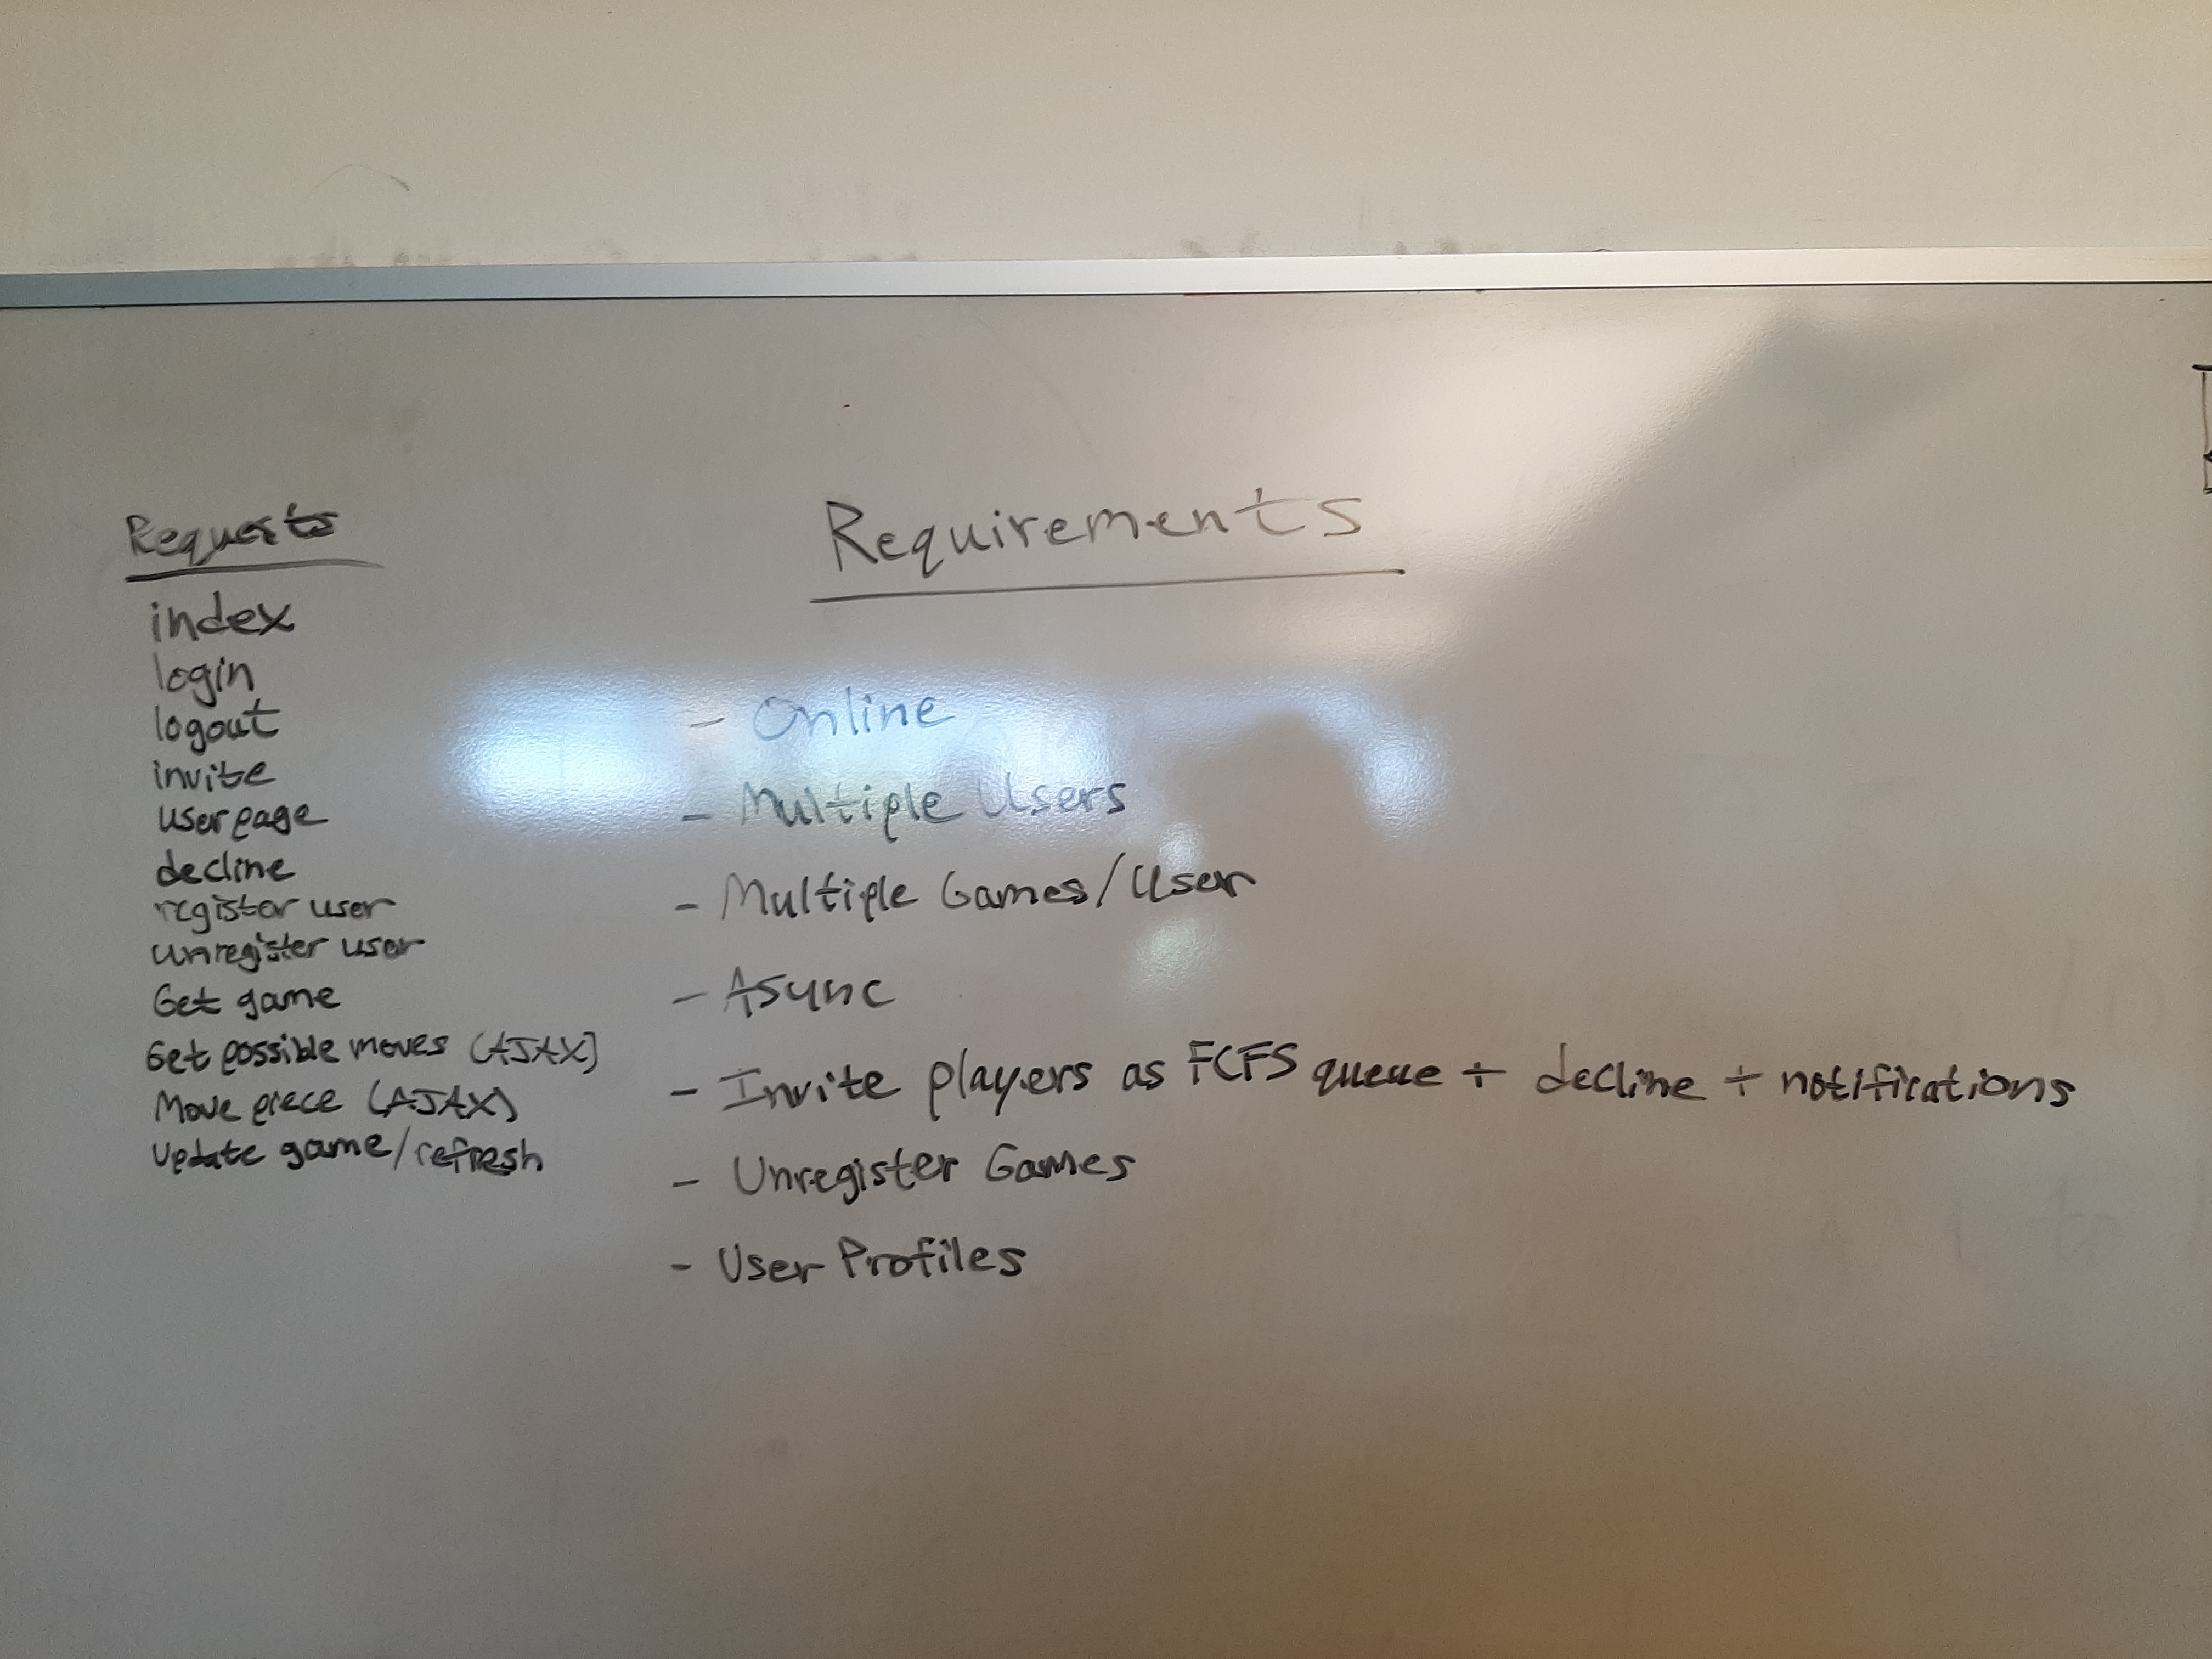 Requests
index
login
logout
invite
user page
decline
register user
unregister user
Get game
Get possible moves (AJAX)
Move piece (AJAX)
Update game/refresh
Requirements
- Online
- Multiple Users
- Multiple Games/User
- Async
- Invite players as FCFS queue + decline + notifications
- Unregister Games
- User Profiles